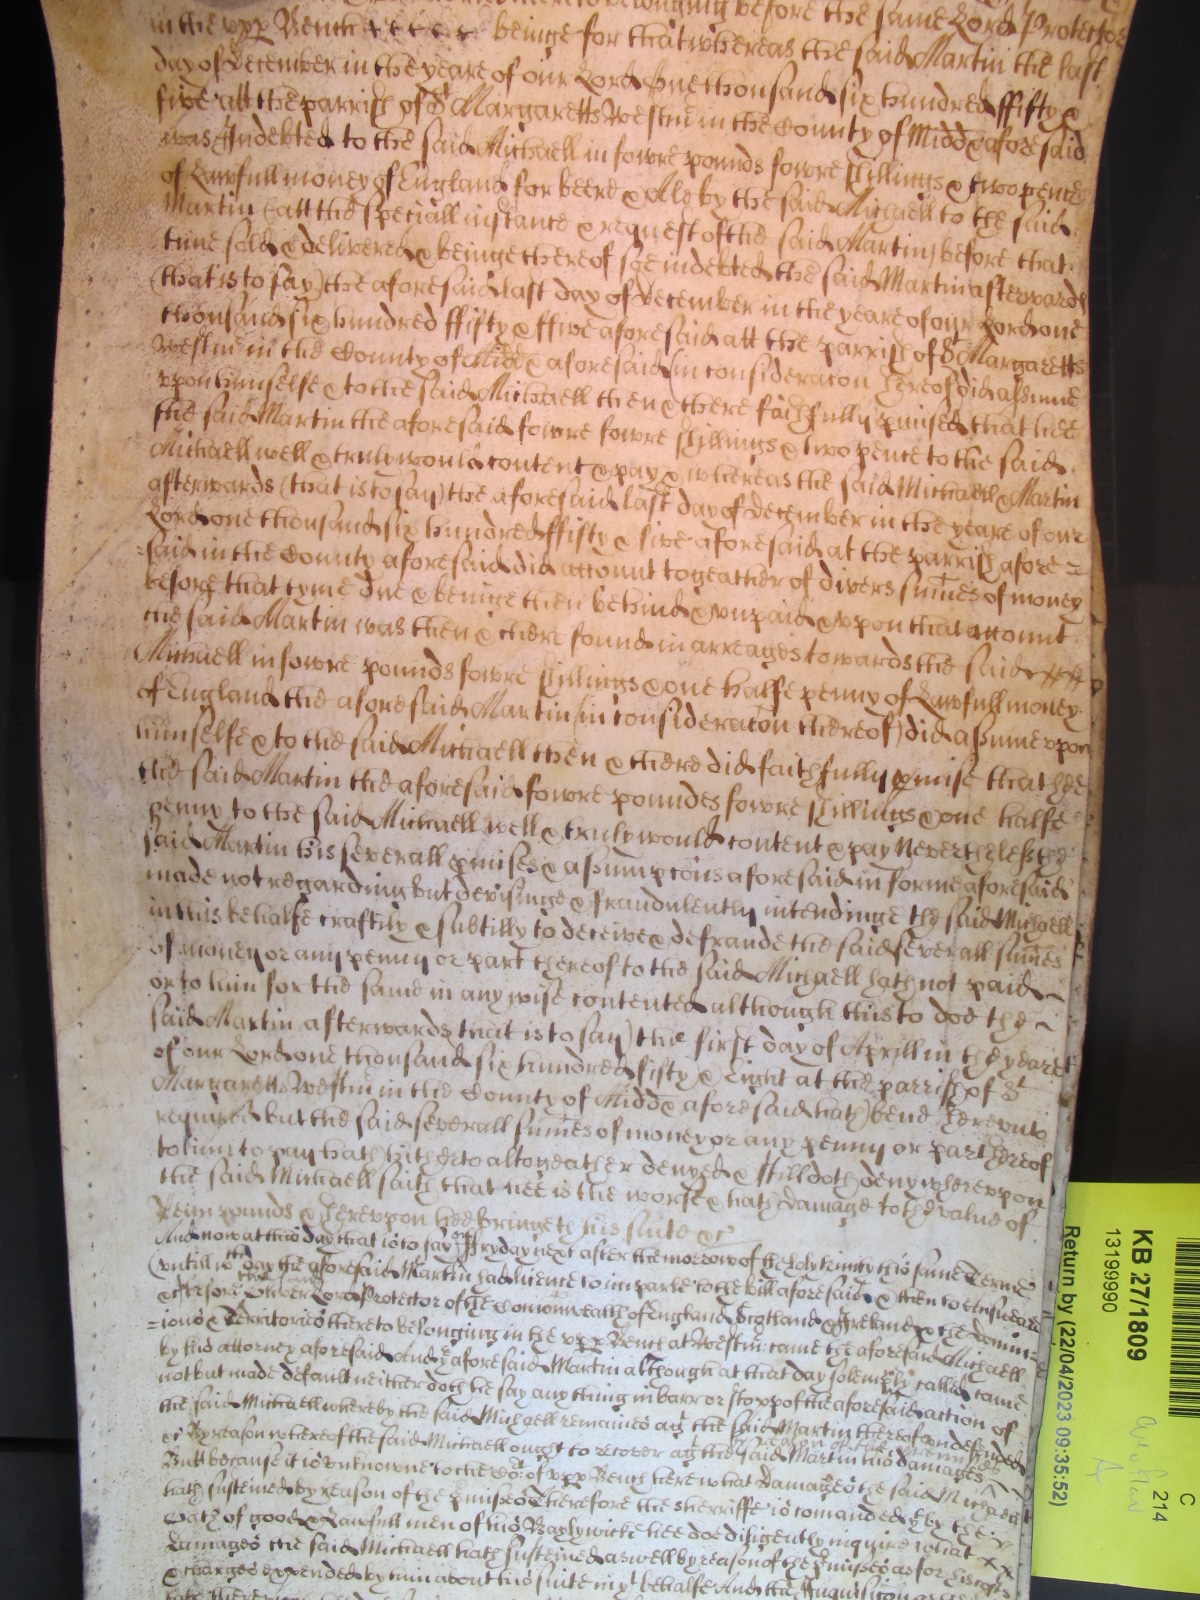 belonging before the same Lord Protector
in the upp Bench beinge for that whereas the said Martin the last
day of December in the yeare of our Lord one thousand six hundred ffifty &
five att the parrish of St Margaretts Westm in the County of Midd aforesaid
was Indebted to the said Michaell in fowre pounds fowre shillings & two pence
of Lawfull money of England for beere & Ale by the said Michaell to the said
Martin (att the speciall instance & request of the said Martin) before that
time sold & delivered & beinge thereof soe indebted the said Martin afterwards
(that is to say) the aforesaid last day of December in the yeare of our Lord one
thousand six hundred ffifty & ffive aforesaid att the parrish of St Margaretts
Westm in the County of Midd aforesaid (in consideracon thereof) did assume
vpon himselfe & to the said Michaell then & there faithfully pmised that hee
the said Martin the aforesaid fowre fowre shillings & two pence to the said
Michaell well & truly would content & pay & whereas the said Michaell & Martin
afterwards (that is to say) the aforesaid last day of December in the yeare of our
Lord one thousand six hundred ffifty & five aforesaid at the parrish afore =
=said in the County aforesaid did account togeather of divers summes of money
before that tyme due & beinge then behind & vnpaid & vpon that account
the said Martin was then & there found in arreages towards the said
Michaell in fowre pounds fowre shillings & one halfe penny of Lawfull money
of England the aforesaid Martin (in consideracon thereof) did assume vpon
himselfe & to the said Michaell then & there did faithfully pmise that hee
the said Martin the aforesaid fowre poundes fowre shillings & one halfe
penny to the said Michaell well & truly would content & pay Neverthelesse the
said Martin his severall pmises & assumpcons aforesaid in forme aforesaid
made not regarding but devisinge & fraudulently intendinge the said Michaell
in this behalfe craftily & subtilly to deceive & defraude the said severall summes
of money or any penny or part thereof to the said Michaell hath not paid
or to him for the same in any wise contented although this to doe the
said Martin afterwards that is to say) the first day of Aprill in the yeare
of our Lord one thousand six hundred fifty & Eight at the parrish of St
Margaretts Westm in the County of Midd aforesaid hath bene thereunto
required but the said severall summes of money or any penny or part thereof
to him to pay hath hitherto altogeather denyed & still doth deny wherevpon
the said Michaell saith that hee is the worse & hath damage to the value of
pounds & therevpon hee bringeth his suite &c
And now at this day that is to say on ffryday next after the morrow of the holy trinity this same Terme
(vntill wch day the aforesaid Martin had licence to imparle to the bill aforesaid & then to answeare
& before the same Oliver Lord Protector of the Comonwealth of England Scotland & Ireland & the domin=
=ions & Territories thereto belonging in the upp Bench at Westm came the aforesaid Michaell
by his attorney aforesaid And ye aforesaid Martin although at that day solemply called came
not but made default neither doth he say any thing in barr or stopp of the aforesaid action of
the said Michaell whereby the said Michaell remaines agt the said Martin thereof vndefended
& By reason whereof the said Michaell ought to recover agt the said Martin his damages
by reason of the pmisses
But because it is vnknowne to the Cort of upp Bench here what damages the said Michaell
hath susteined by reason of the pmisses Therefore the sherriffe is comanded yt by the
oath of good & Lawfull men of his Baylywicke hee doe diligently inquire what
damages the said Michaell hath susteined aswell by reason of the pmisses as for his costs
& charges expended by him about his suite in yt behalfe And the Inquisicon
KB 27/1809
13199990
Return by (22/04/2023 09:35:52)
C
214